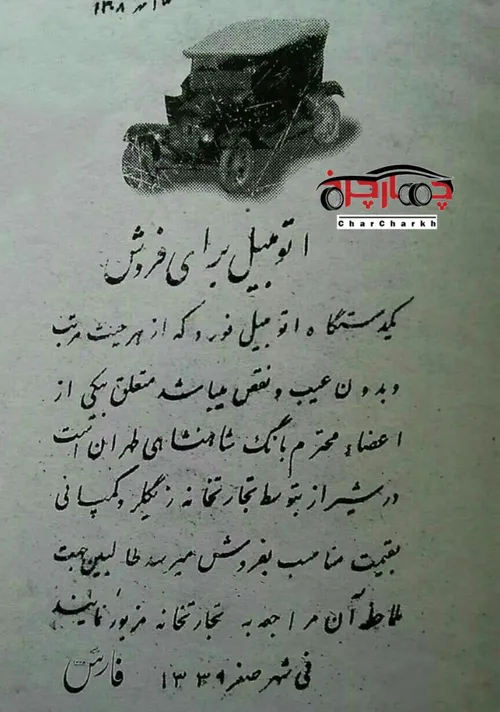 چهارچرخ
CharCharkh
اتومبیل برای فروش
یکدستگاه اتومبیل فورد که از هر حیث مرتب
و بدون عیب و نقص میباشد متعلق بیکی از
اعضاء محترم بانک شاهنشاهی طهران است
در شیراز بتوسط تجارتخانه زیگلر و کمپانی
بقیمت مناسب بفروش میرسد طالبین جهت
ملاحظه آن مراجعه به تجارتخانه مزبور نمایند
فی شهر صفر ۱۳۳۹ فارس